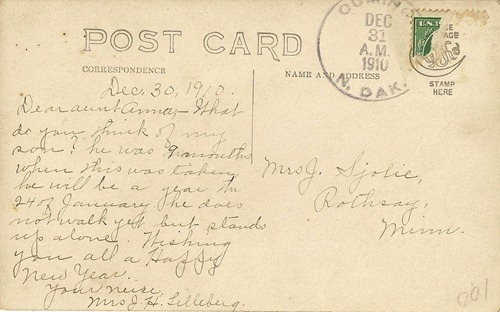 POST CARD
CORRESPONDENCE
NAME AND ADDRESS
DEC
31
A.M.
1910
N. DAK.
STAMP
HERE
Dec, 30, 1910.
Dear aunt Anna,- What
do you think of my
son? he was 9 months
when this was taken
he will be a year the
24 of January he does
not walk yet but stands
up alone. Wishing
you all a Happy
New Year.
Your neise,
Mrs J. H. Lilleberg.
Mrs J. Sjolie,
Rothsay,
Minn.